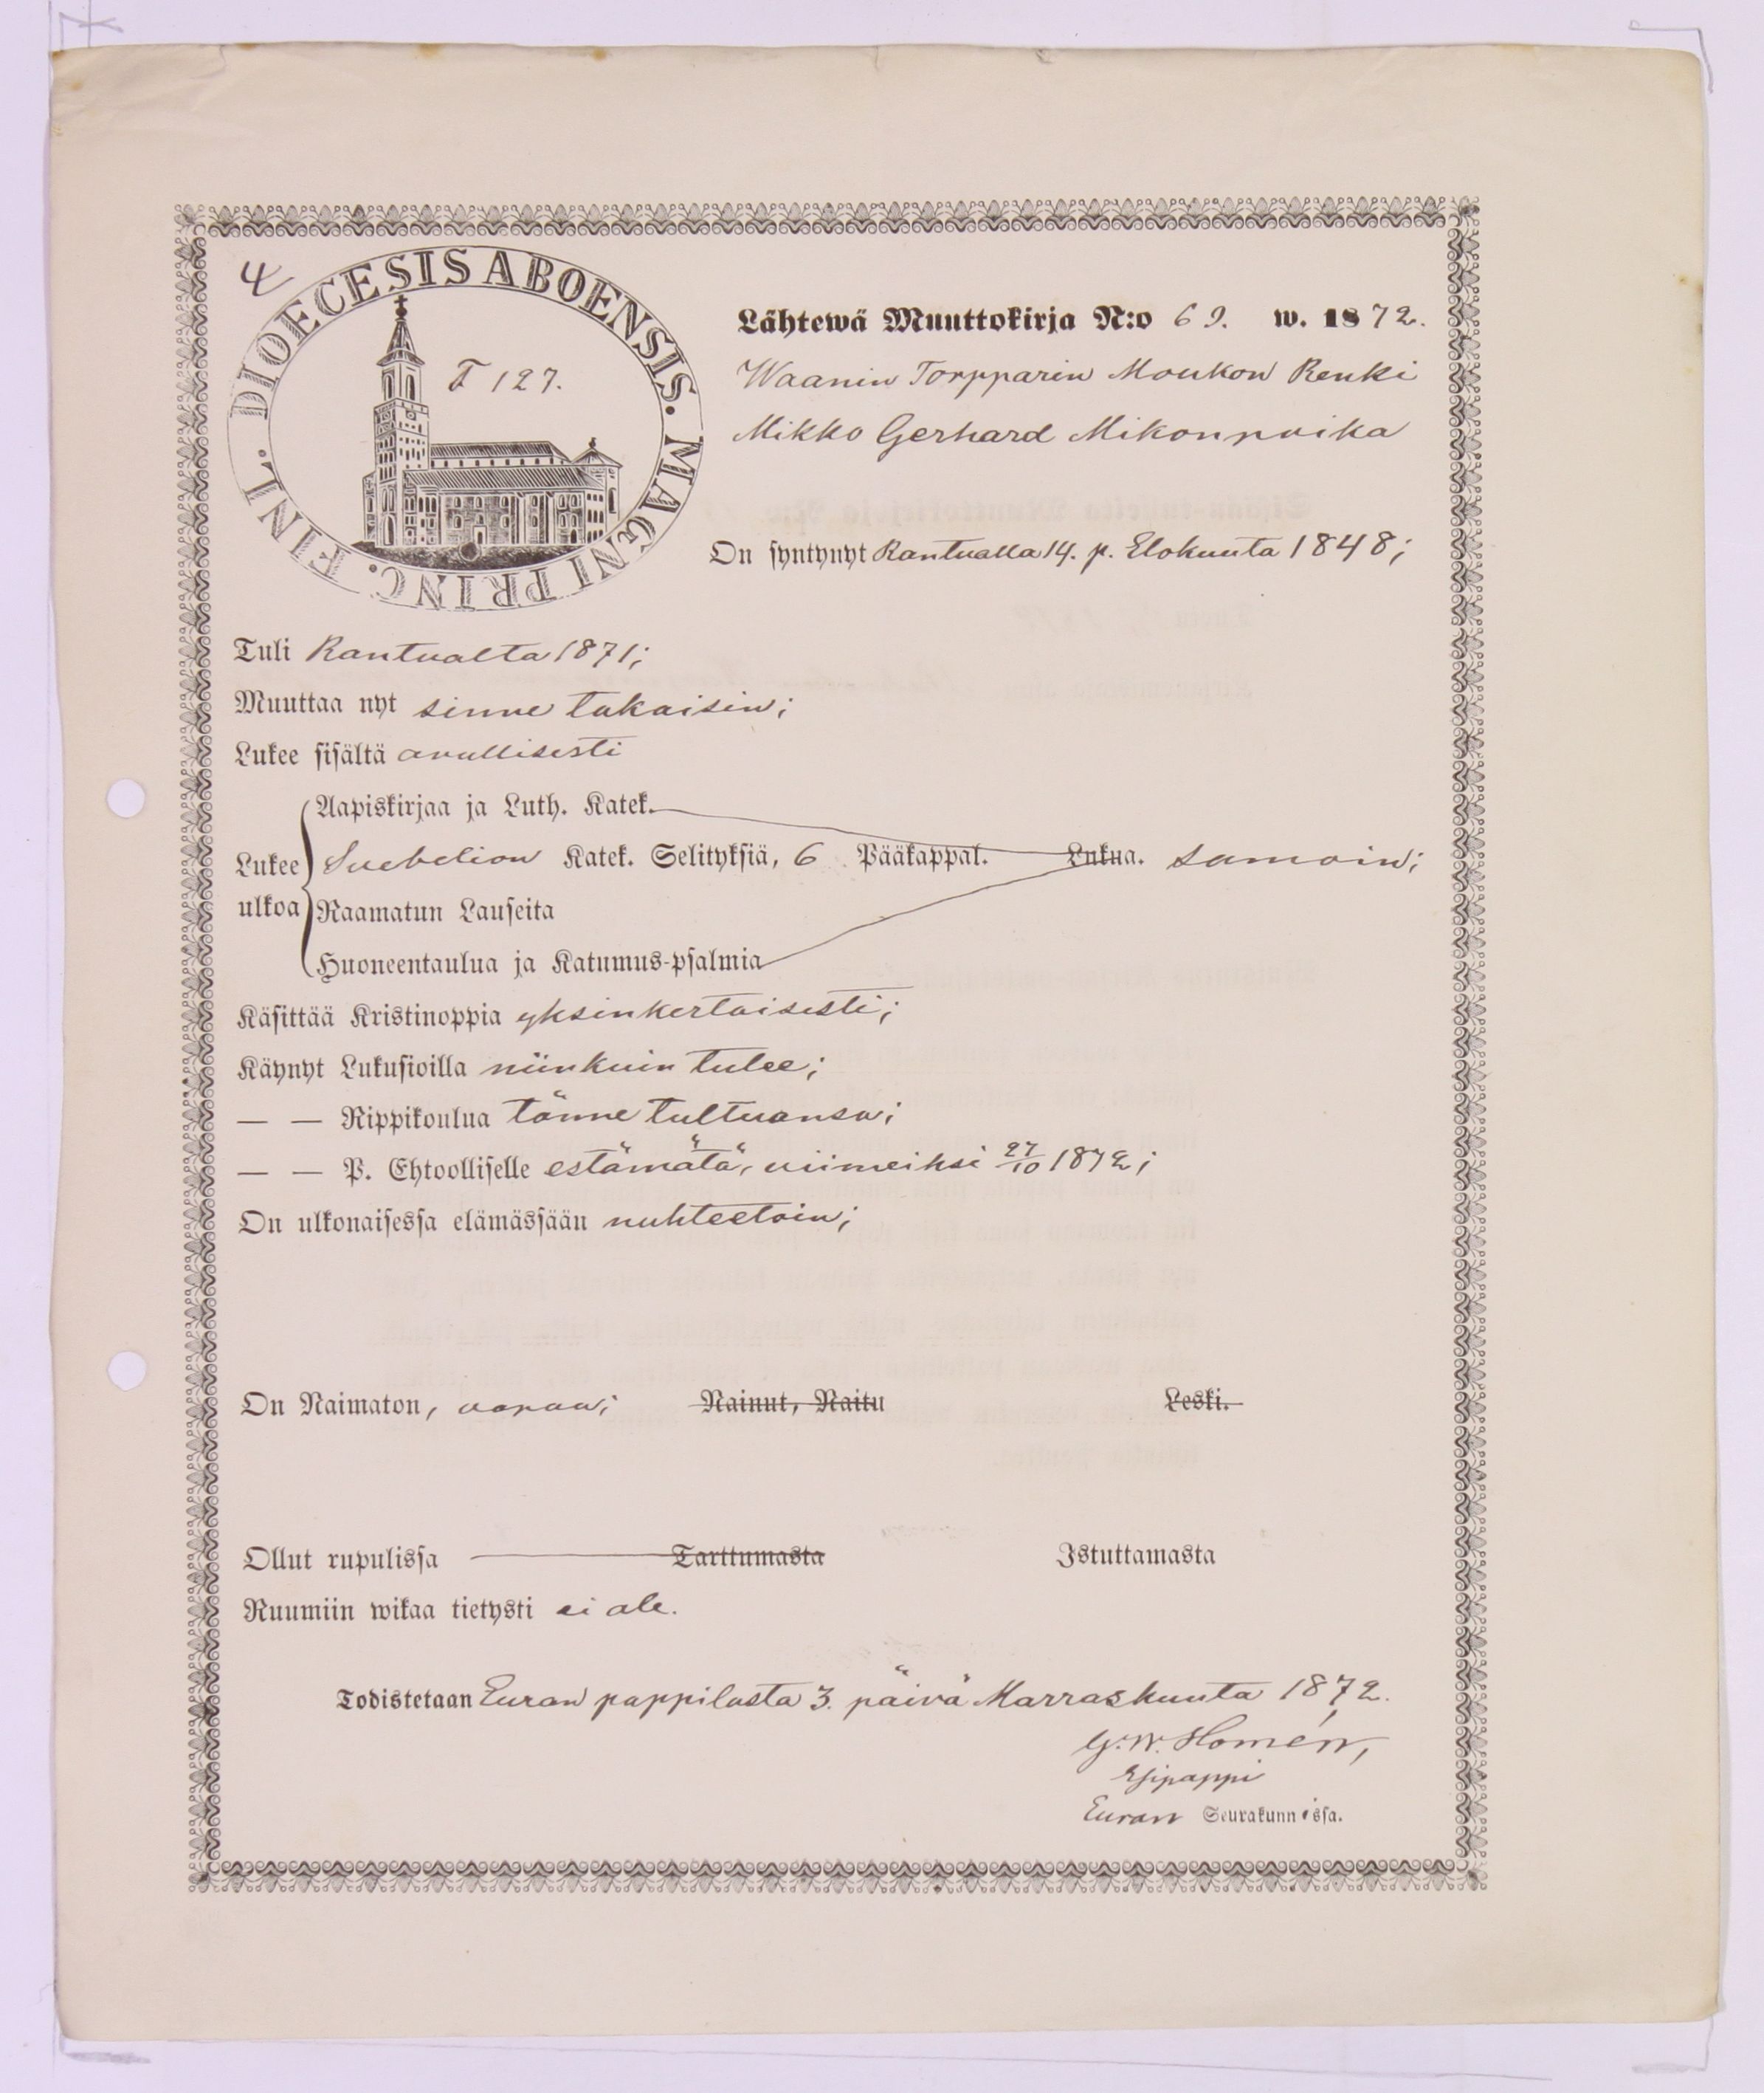 4
DIOECESIS ABOENSIS. MAGNI PRINC. FINL.
F 127.
Lähtewä Muuttokirja N:o 69. w. 1872.
Waanin Torpparin Moukon Renki
Mikko Gerhard Mikonpoika
On syntynyt Kantualla 14. p. Elokuuta 1848;
Tuli Kantualta 1871;
Muuttaa nyt sinne takaisin;
Lukee sisältä avullisesti
Aapiskirjaa ja Luth. Katek.
Lukee Svebelion Katek. Selityksiä, 6 Pääkappal. Lukua. samoin;
ulkoa Raamatun Lauseita
Huoneentaulua ja Katumus-psalmia
Käsittää Kristinoppia yksinkertaisesti;
Käynyt Lukusioilla niinkuin tulee;
— — Rippikoulua tänne tultuansa;
— — P. Ehtoolliselle estämätä, viimeiksi 27/10 1872;
On ulkonaisessa elämässään nuhteetoin;
On Naimaton, vapaa; Nainut, Naitu Leski.
Ollut rupulissa Tarttumasta Istuttamasta
Ruumiin wikaa tietysti ei ole.
Todistetaan Euran pappilasta 3. päivä Marraskuuta 1872.
G. W. Homén,
Esipappi
Euran Seurakunnissa.